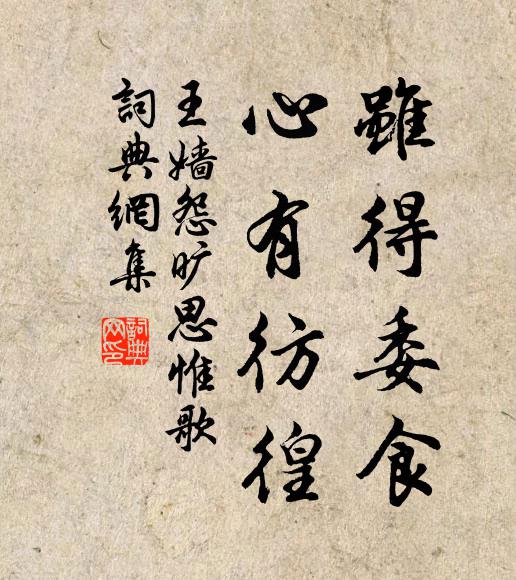 雖得委食
心有彷徨
王嬙怨旷思惟歌
詞典網集
詞典
网印